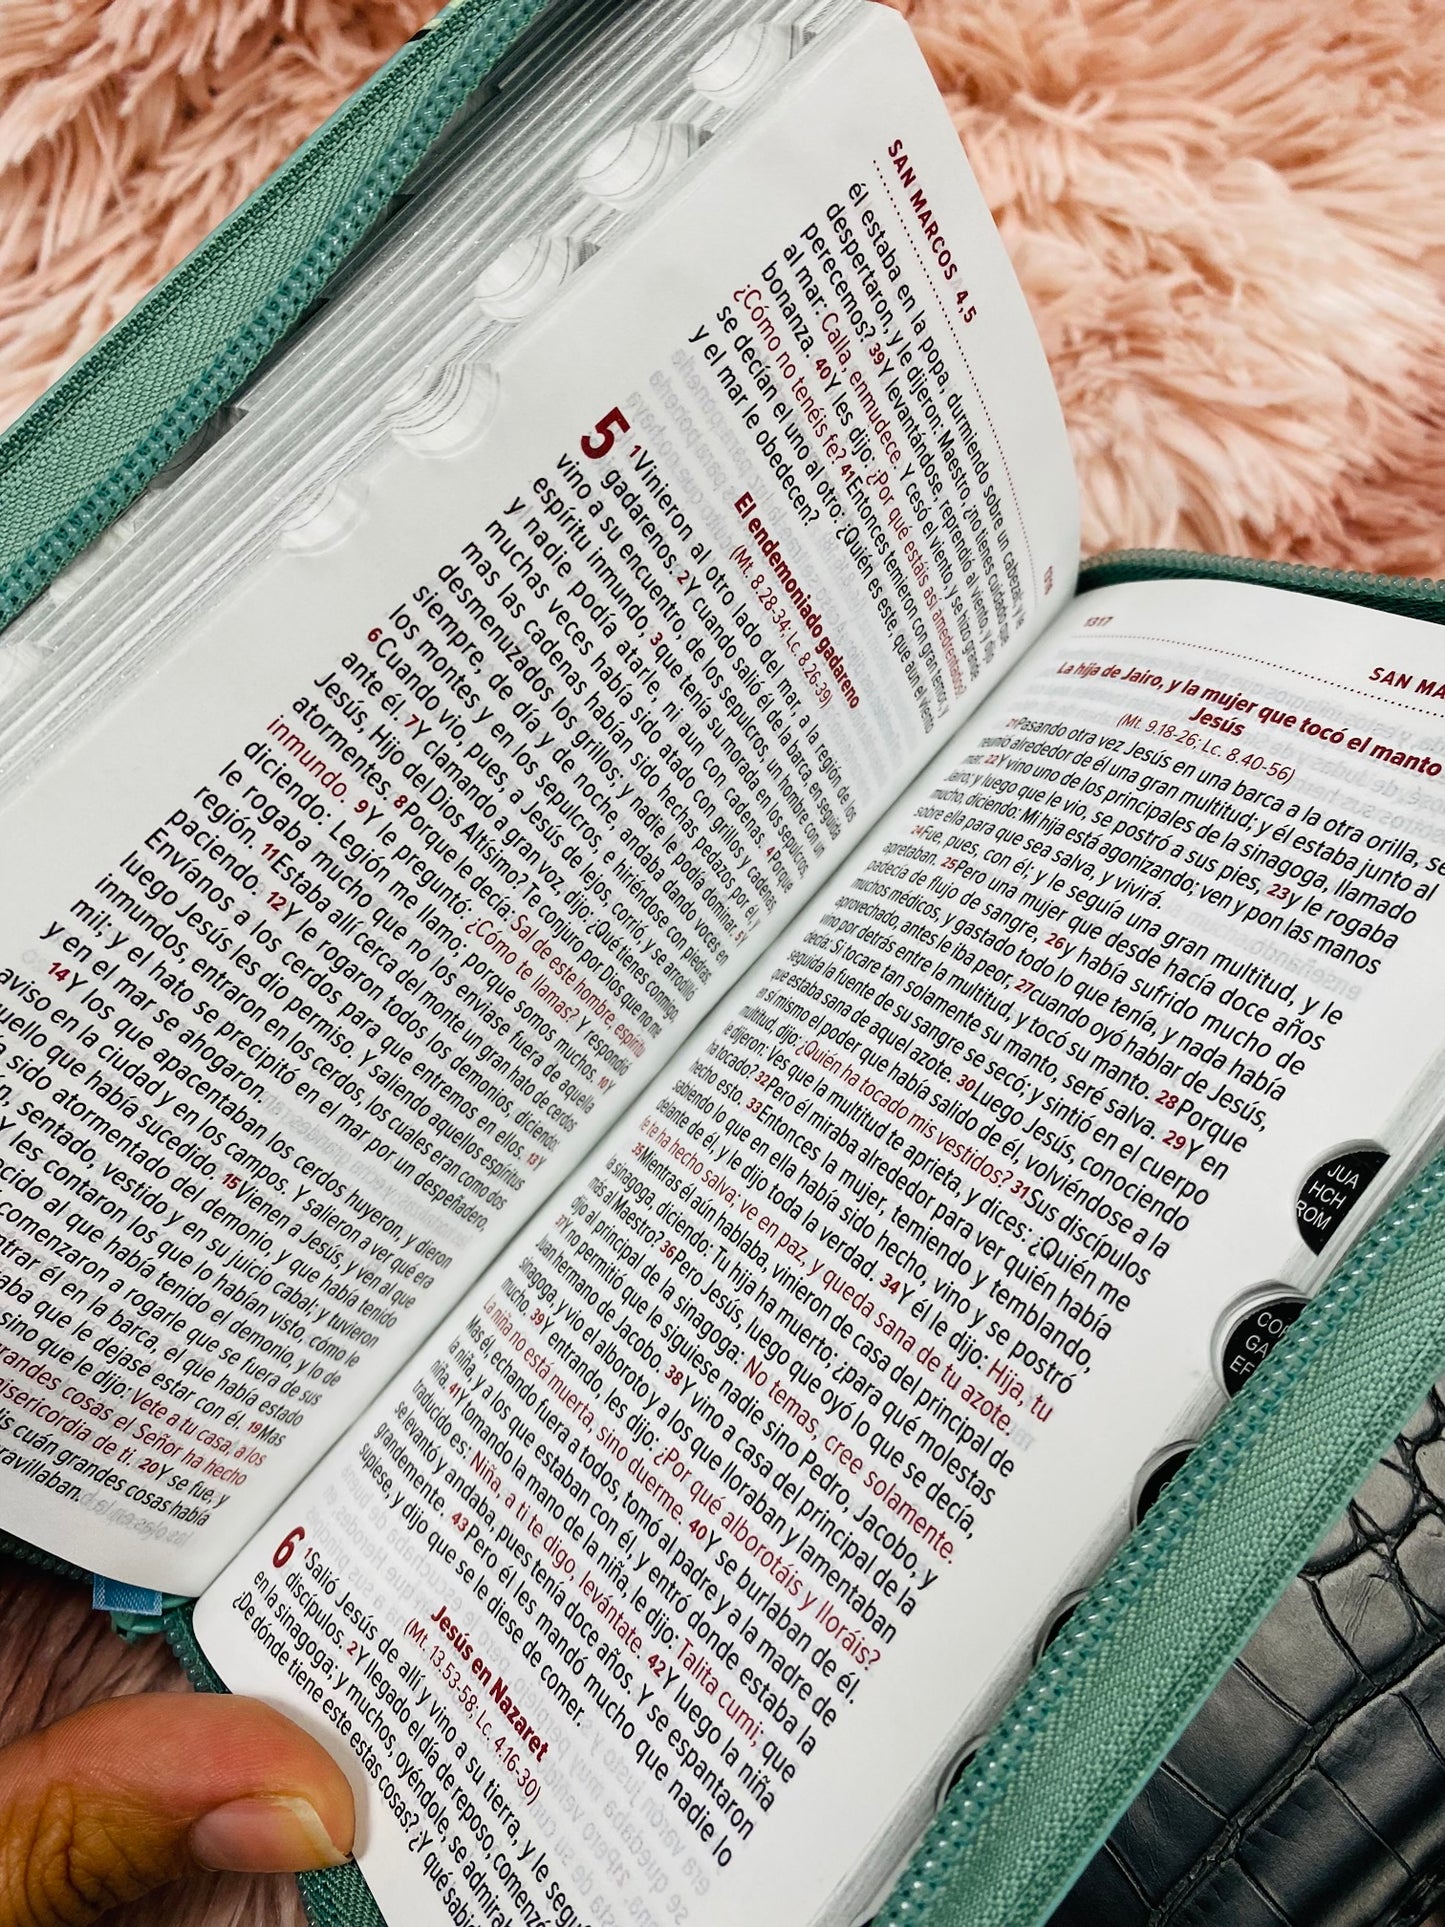 SAN MARCOS 4, 5
él estaba en la popa, durmiendo sobre un cabezal; y le
despertaron, y le dijeron: Maestro, ¿no tienes cuidado que
perecemos? 39Y levantándose, reprendió al viento, y dijo
al mar: Calla, enmudece. Y cesó el viento, y se hizo grande
bonanza. 40Y les dijo: ¿Por qué estáis así amedrentados?
¿Cómo no tenéis fe? 41Entonces temieron con gran temor, y
se decían el uno al otro: ¿Quién es este, que aun el viento
y el mar le obedecen?
El endemoniado gadareno
(Mt. 8.28-34; Lc. 8.26-39)
5 1Vinieron al otro lado del mar, a la región de los
gadarenos. 2Y cuando salió él de la barca, en seguida
vino a su encuentro, de los sepulcros, un hombre con un
espíritu inmundo, 3que tenía su morada en los sepulcros,
y nadie podía atarle, ni aun con cadenas. 4Porque
muchas veces había sido atado con grillos y cadenas,
mas las cadenas habían sido hechas pedazos por él, y
desmenuzados los grillos; y nadie le podía dominar. 5Y
siempre, de día y de noche, andaba dando voces en
los montes y en los sepulcros, e hiriéndose con piedras.
6Cuando vio, pues, a Jesús de lejos, corrió, y se arrodilló
ante él. 7Y clamando a gran voz, dijo: ¿Qué tienes conmigo,
Jesús, Hijo del Dios Altísimo? Te conjuro por Dios que no me
atormentes. 8Porque le decía: Sal de este hombre, espíritu
inmundo. 9Y le preguntó: ¿Cómo te llamas? Y respondió
diciendo: Legión me llamo; porque somos muchos. 10Y
le rogaba mucho que no los enviase fuera de aquella
región. 11Estaba allí cerca del monte un gran hato de cerdos
paciendo. 12Y le rogaron todos los demonios, diciendo:
Envíanos a los cerdos para que entremos en ellos. 13Y
luego Jesús les dio permiso. Y saliendo aquellos espíritus
inmundos, entraron en los cerdos, los cuales eran como dos
mil; y el hato se precipitó en el mar por un despeñadero,
y en el mar se ahogaron.
14Y los que apacentaban los cerdos huyeron, y dieron
aviso en la ciudad y en los campos. Y salieron a ver qué era
que había sucedido. 15Vienen a Jesús, y ven al que
sido atormentado del demonio, y que había tenido
sentado, vestido y en su juicio cabal; y tuvieron
Y les contaron los que lo habían visto, cómo le
al que había tenido el demonio, y lo de
comenzaron a rogarle que se fuera de sus
él en la barca, el que había estado
que le dejase estar con él. 19Mas
sino que le dijo: Vete a tu casa, a los
cosas el Señor ha hecho
misericordia de ti. 20Y se fue, y
cuán grandes cosas había
1317
SAN MA
La hija de Jairo, y la mujer que tocó el manto
Jesús
(Mt. 9.18-26; Lc. 8.40-56)
21Pasando otra vez Jesús en una barca a la otra orilla, se
reunió alrededor de él una gran multitud; y él estaba junto al
mar. 22Y vino uno de los principales de la sinagoga, llamado
Jairo; y luego que le vio, se postró a sus pies, 23y le rogaba
mucho, diciendo: Mi hija está agonizando; ven y pon las manos
sobre ella para que sea salva, y vivirá.
24Fue, pues, con él; y le seguía una gran multitud, y le
apretaban. 25Pero una mujer que desde hacía doce años
padecía de flujo de sangre, 26y había sufrido mucho de
muchos médicos, y gastado todo lo que tenía, y nada había
aprovechado, antes le iba peor, 27cuando oyó hablar de Jesús,
vino por detrás entre la multitud, y tocó su manto. 28Porque
decía: Si tocare tan solamente su manto, seré salva. 29Y en
seguida la fuente de su sangre se secó; y sintió en el cuerpo
que estaba sana de aquel azote. 30Luego Jesús, conociendo
en sí mismo el poder que había salido de él, volviéndose a la
multitud, dijo: ¿Quién ha tocado mis vestidos? 31Sus discípulos
le dijeron: Ves que la multitud te aprieta, y dices: ¿Quién me
ha tocado? 32Pero él miraba alrededor para ver quién había
hecho esto. 33Entonces la mujer, temiendo y temblando,
sabiendo lo que en ella había sido hecho, vino y se postró
delante de él, y le dijo toda la verdad. 34Y él le dijo: Hija, tu
fe te ha hecho salva; ve en paz, y queda sana de tu azote.
35Mientras él aún hablaba, vinieron de casa del principal de
la sinagoga, diciendo: Tu hija ha muerto; ¿para qué molestas
más al Maestro? 36Pero Jesús, luego que oyó lo que se decía,
dijo al principal de la sinagoga: No temas, cree solamente.
37Y no permitió que le siguiese nadie sino Pedro, Jacobo, y
Juan hermano de Jacobo. 38Y vino a casa del principal de la
sinagoga, y vio el alboroto y a los que lloraban y lamentaban
mucho. 39Y entrando, les dijo: ¿Por qué alborotáis y lloráis?
La niña no está muerta, sino duerme. 40Y se burlaban de él.
Mas él, echando fuera a todos, tomó al padre y a la madre de
la niña, y a los que estaban con él, y entró donde estaba la
niña. 41Y tomando la mano de la niña, le dijo: Talita cumi; que
traducido es: Niña, a ti te digo, levántate. 42Y luego la niña
se levantó y andaba, pues tenía doce años. Y se espantaron
grandemente. 43Pero él les mandó mucho que nadie lo
supiese, y dijo que se le diese de comer.
Jesús en Nazaret
(Mt. 13.53-58; Lc. 4.16-30)
6 1Salió Jesús de allí y vino a su tierra, y le
discípulos. 2Y llegado el día de reposo,
en la sinagoga; y muchos, oyéndole, se
¿De dónde tiene este estas cosas? ¿Y qué
JUA
HCH
ROM
GA